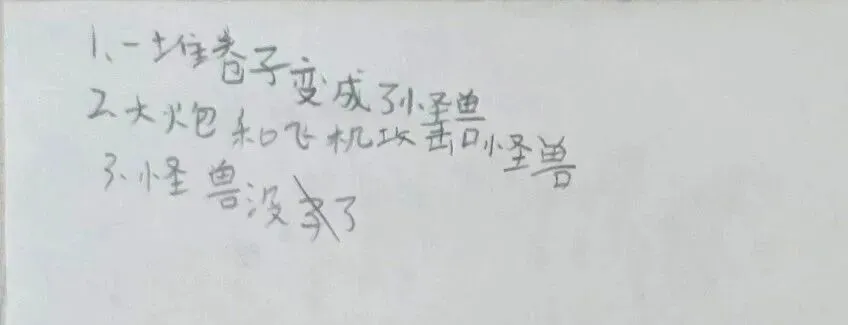 1、一堆卷子变成了怪兽
2、大炮和飞机攻击怪兽
3、怪兽没了